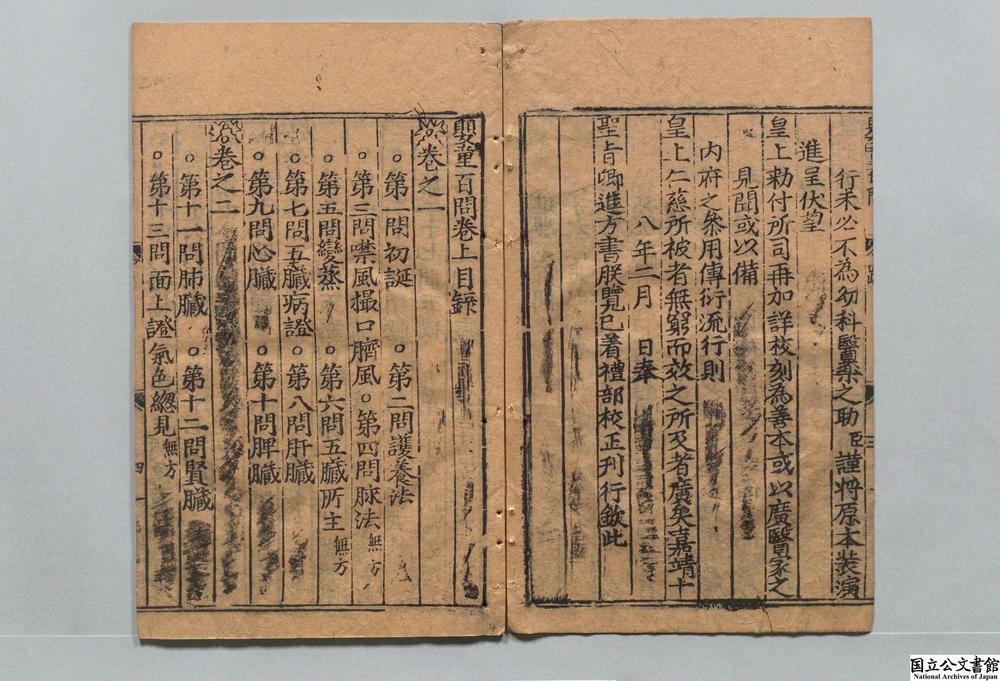 行未必不為幼科醫藥之助臣謹將原本裝演
進呈伏望
皇上勑付所司再加詳校刻為善本或以廣醫家之
見聞或以備
內府之叅用傳衍流行則
皇上仁慈所被者無窮而效之所及者廣矣嘉靖十
八年二月 日奉
聖旨卿進方書朕覽已着禮部校正刊行欽此
嬰童百問卷上目録
卷之一
○第一問初誕 ○第二問護養法
○第三問噤風撮口臍風 ○第四問脉法 無方
○第五問變蒸 ○第六問五臟所主 無方
○第七問五臟病證 ○第八問肝臟
○第九問心臟 ○第十問脾臟
卷之二
○第十一問肺臟 ○第十二問腎臟
○第十三問面上證氣色緫見 無方
四
国立公文書館
National Archives of Japan